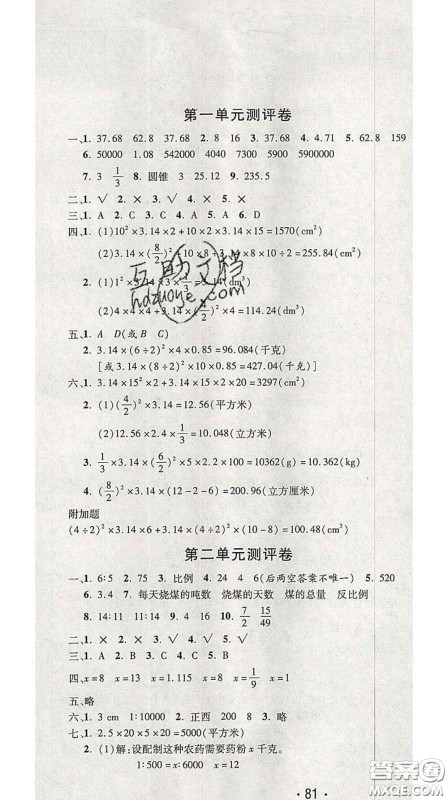 第一单元测评卷
一、1. 37.68 62.8 37.68 2. 8 16 3. 37.68 4. 4.71 5. 62.8 159
6. 50000 1.08 542000 4040 7300 5900 5900000
7. 3 1/3 8. 圆锥 3 25.12 9. 235.5
二、1. √ 2. × 3. × 4. √ 5. ×
三、1. A 2. C 3. C 4. A 5. A 6. D
四、1. (1)10²×3.14×2+10×2×3.14×15=1570(cm²)
(2)3.14×(8/2)²+10×8+3.14×8×10÷2=255.84(cm²)
2. (1)1²×3.14×
(2)4×4×4+3.14×(4/2)²×4=114.24(dm³)
五、1. A D(或 B C)
2. 3.14×(6÷2)²×4×0.85=96.084(千克)
[或 3.14×(8÷2)²×3×0.85=128.112(千克)]
六、1. 3.14×15²×2+3.14×15×2×20=3297(cm²)
2. (1)(4/2)²×3.14=12.56(平方米)
(2)12.56×2.4×1/3=10.048(立方米)
3. 1/3×3.14×(6/2)²×5×2.2×100=10362(g)=10.362(kg)
4. (8/2)²×3.14×(12-2-6)=200.96(立方厘米)
附加题
(4÷2)²×3.14×6+(4÷2)²×3.14×(10-8)=100.48(cm³)
第二单元测评卷
一、1. 6:5 2. 75 3. 比例 4. 24 4 6(后两空答案不唯一) 5. 520
6. 4 7. 每天烧煤的吨数 烧煤的天数 煤的总量 反比例
8. 14:11 11:14 9. 3 10. 7/2 15/49
二、1. × 2. × 3. √ 4. √ 5. ×
三、1. B 2. A 3. C 4. A 5. C 6. B
四、x=8 x=13 x=1.115 x=8 x=1/9 x=1
五、略
六、1. 3 cm 1:10000 2. 正西 200 3. 略
七、1. 2.5×20×5×20=5000(平方米)
2. (1)解:设配制这种农药需要药粉 x 千克。
1:500=x:6000 x=12
· 81 ·
互助文档
hdzuoye.com
答案圈
MXQE.COM